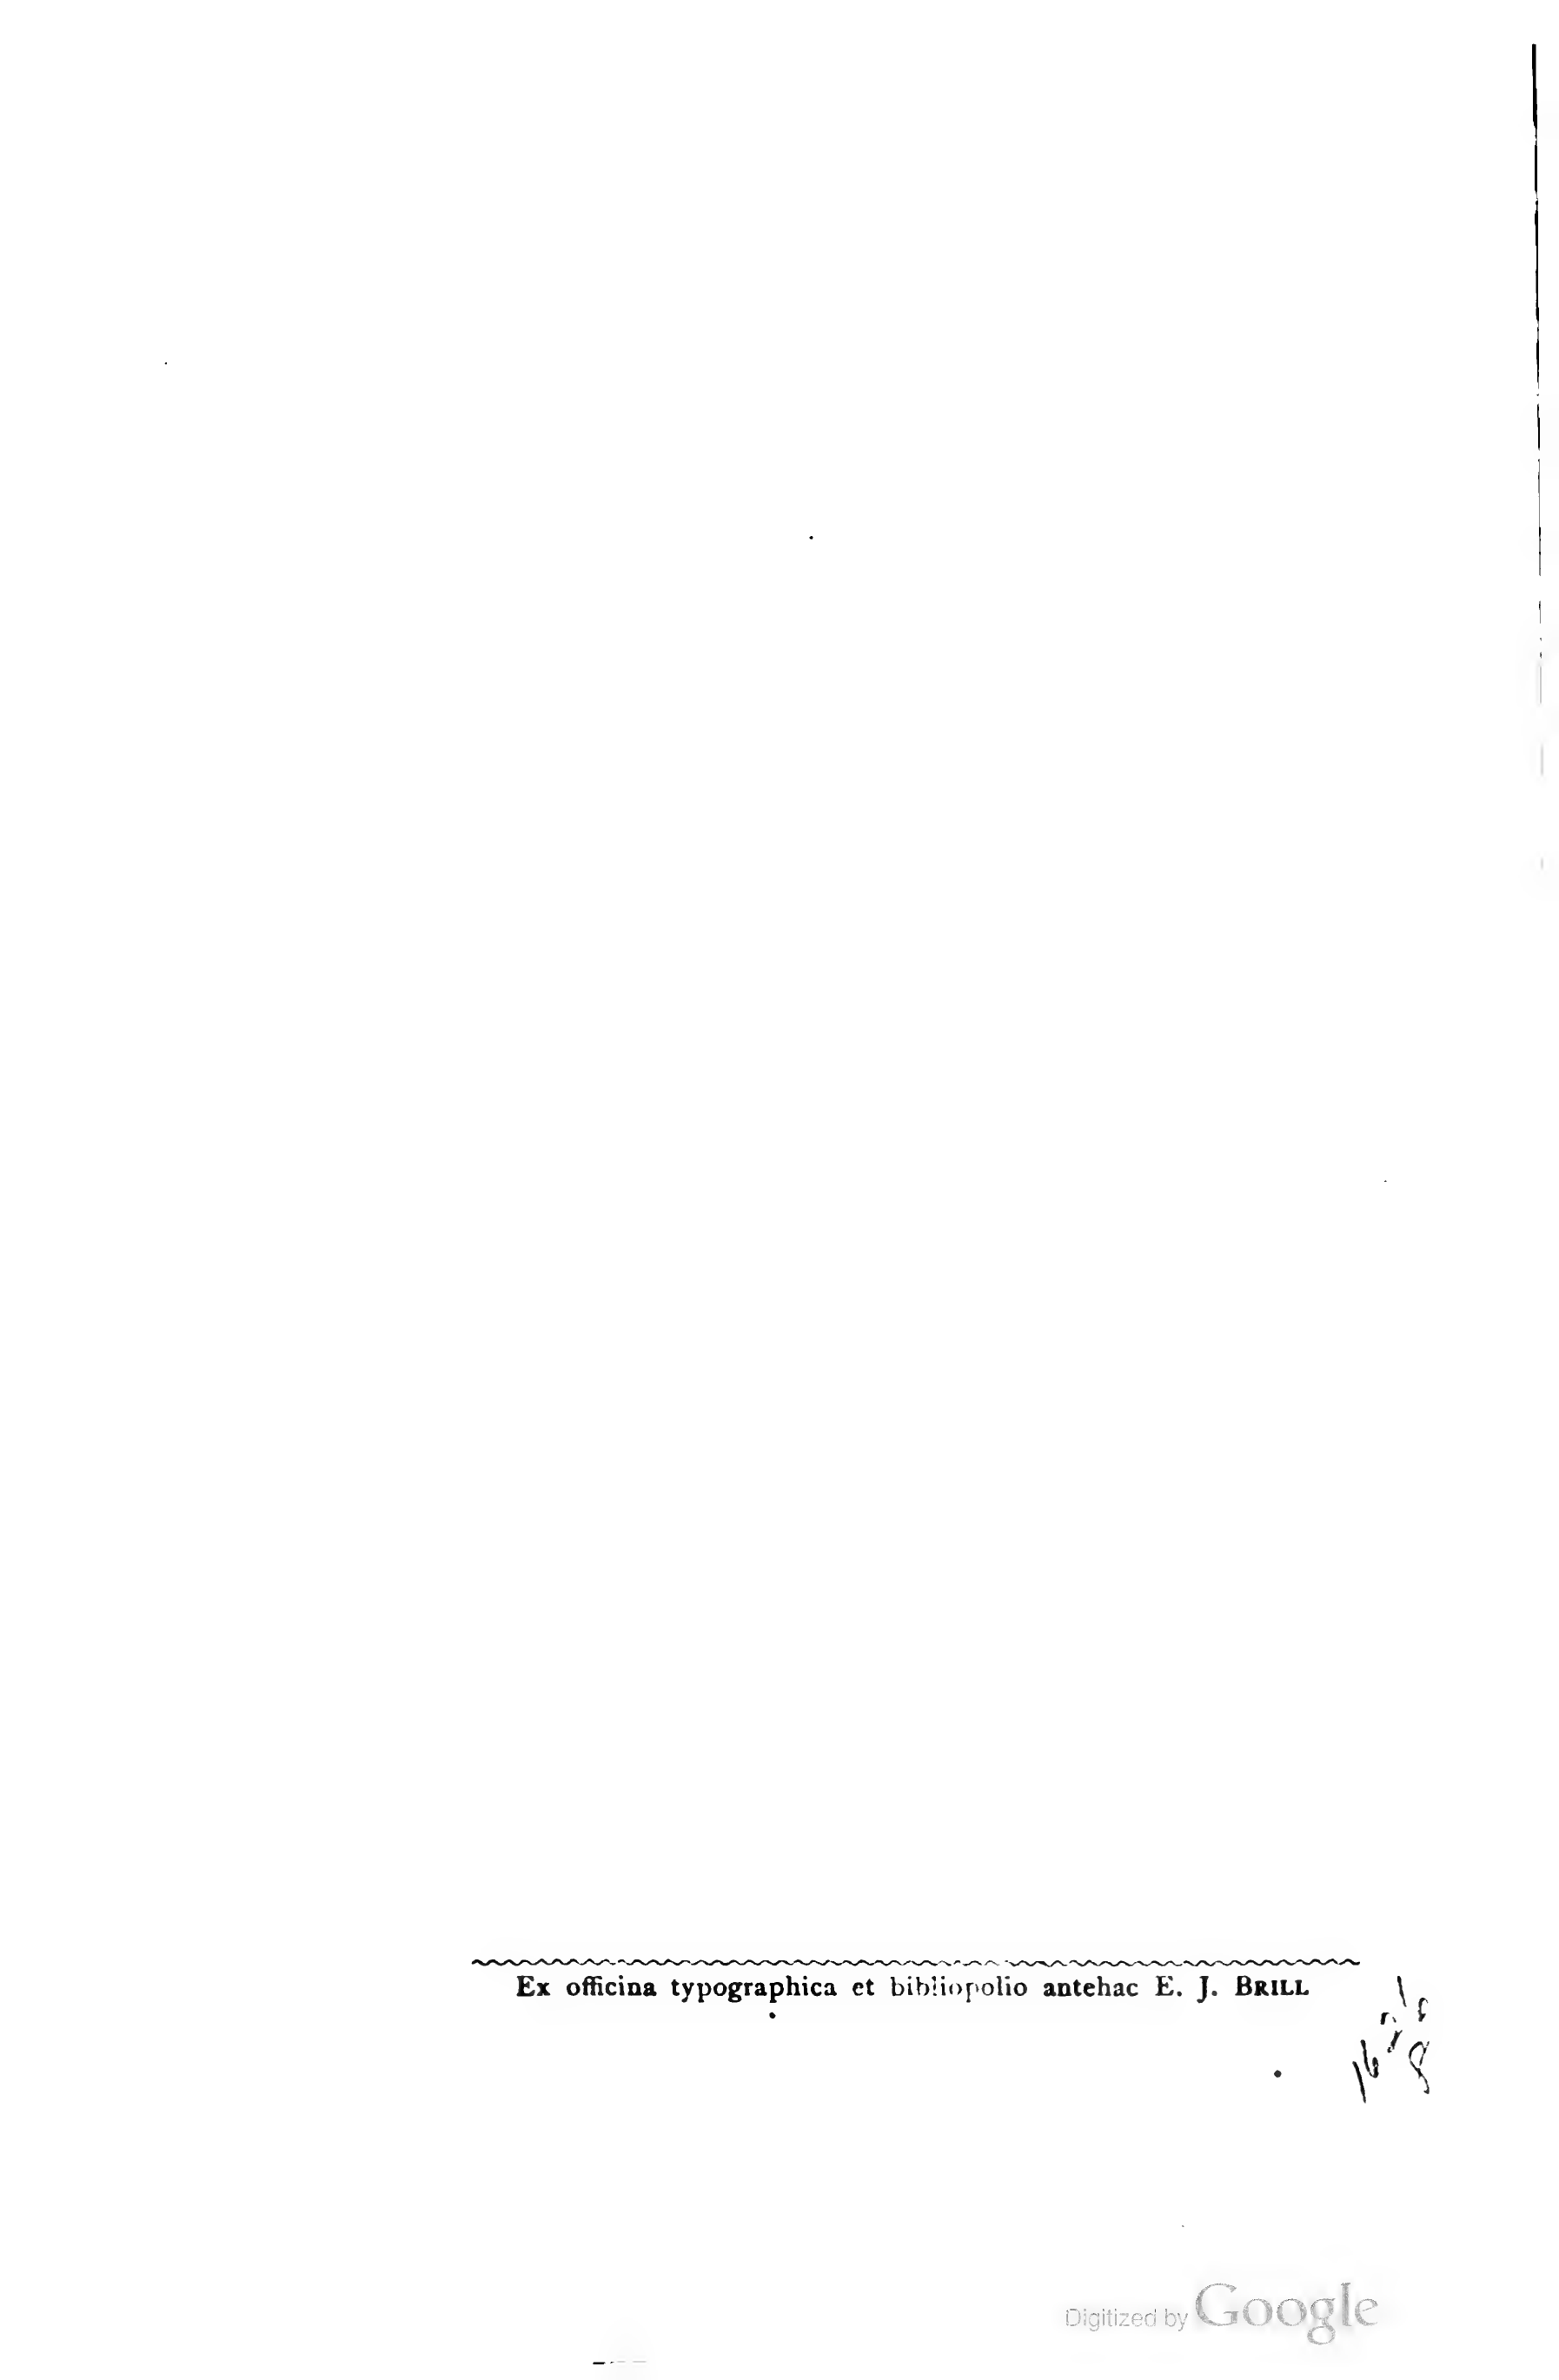 Ex officina typographica et bibliopolio antehac E. J. BRILL
Digitized by Google